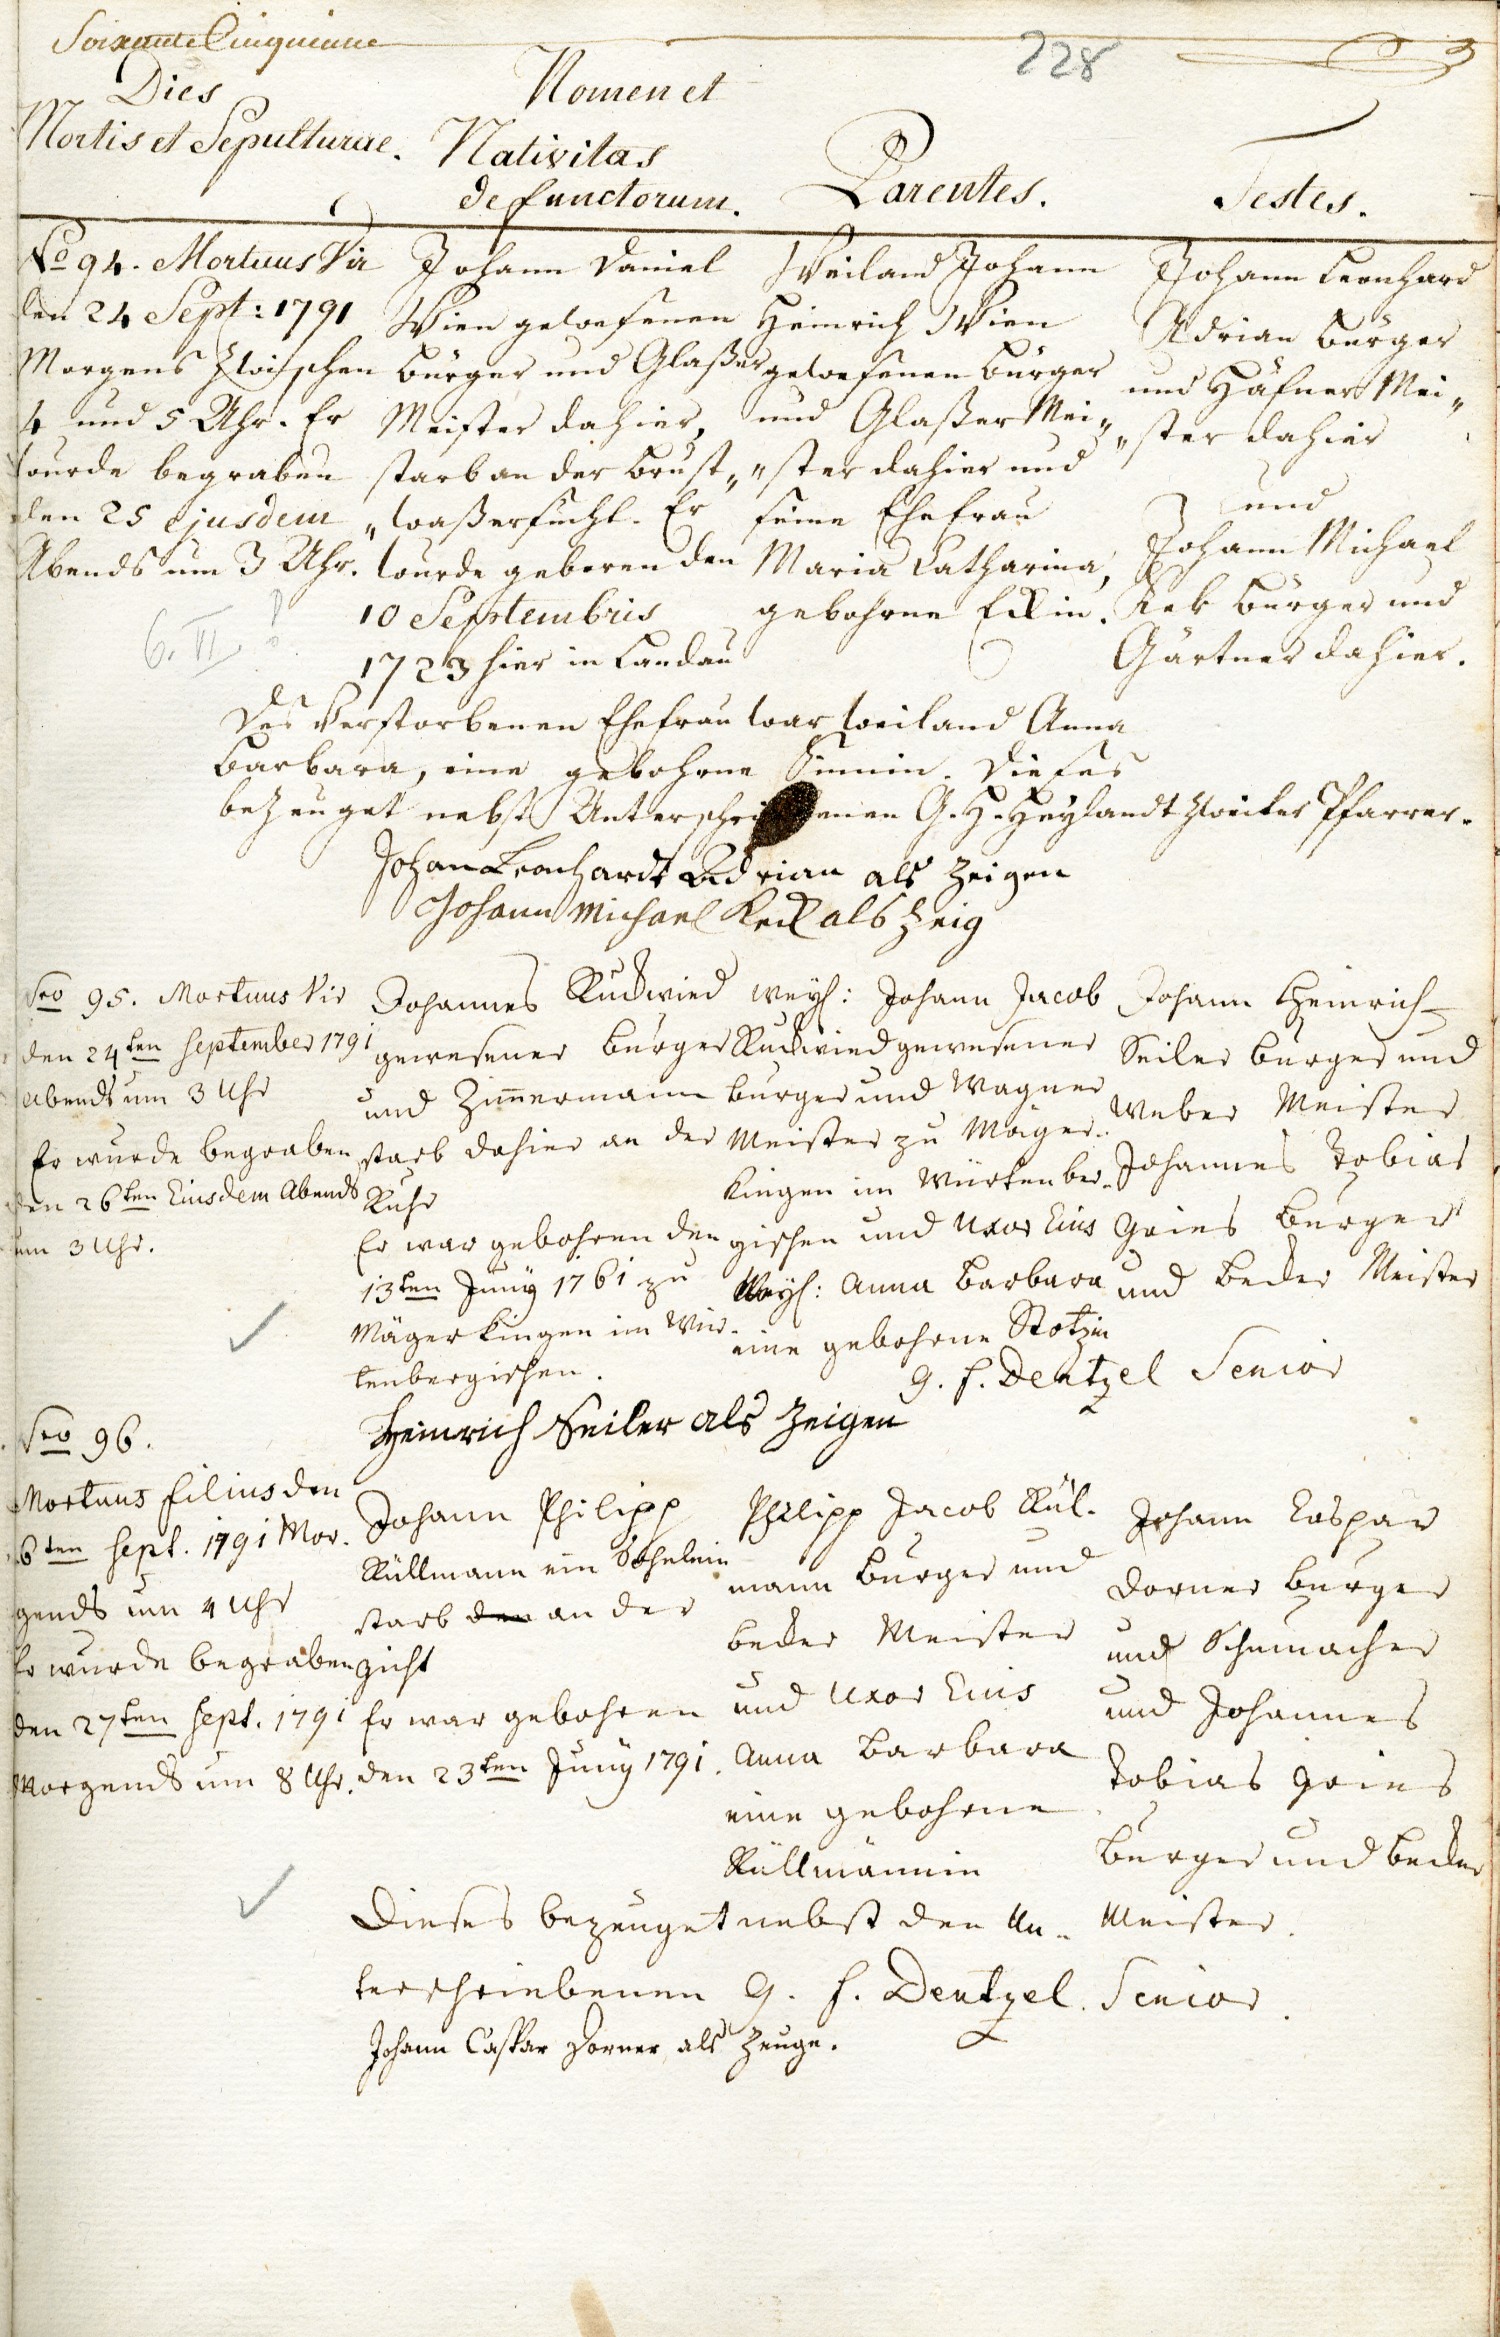 Soixante Cinquieme
228
Dies
Mortis et Sepulturae.
Nomen et
Nativitas
defunctorum.
Parentes.
Testes.
No 94. Mortuus Vir
den 24 Sept: 1791
Morgens zwischen
4 und 5 Uhr. Er
wurde begraben
den 25 ejusdem
Abends um 3 Uhr.
6. VI
Johann Daniel
Wien gewesenen
Bürger und Glaßer
Meister dahier,
starb an der Brust„
„waßersucht. Er
wurde geboren den
10 Septembris
1723 hier in Landau
Weiland Johann
Heinrich Wien
gewesenen Bürger
und Glaßer Mei„
„ster dahier und
seine Ehefrau
Maria Catharina,
gebohrne Eckin.
Johann Leonhard
Adrian Bürger
und Häfner Mei„
„ster dahier
und
Johann Michael
Kek Bürger und
Gärtner dahier.
Des Verstorbenen Ehefrau war weiland Anna
Barbara, eine gebohrne. Dieses
bezeuget nebst Unterschriebenen G. H. Heylandt zweiter Pfarrer.
Johan Leonhardt Adrian als Zeigen
Johann Michael Keck als Zeig
Nro 95. Mortuus Vir
den 24ten September 1791
Abends um 3 Uhr
Er wurde begraben
den 26ten Eiusdem Abends
um 3 Uhr.
Johannes Ruckwied
gewesener Burger
und Zim̅ermann
starb dahier an der
Ruhr
Er war gebohren den
13ten Juny 1761 zu
Mägerkingen im Wür-
tenbergischen.
weyl: Johann Jacob
Ruckwied gewesener
Burger und Wagner
Meister zu Mäger-
kingen im Würtenber-
gischen und Uxor Eius
Weyl: Anna Barbara
eine gebohrne Stotzin
Johann Heinrich
Seiler Burger und
Weber Meister
Johannes Tobias
Gries Burger
und Becker Meister
G. F. Dentzel Senior
Heinrich Seiler als Zeigen
Nro 96.
Mortuus filius den
26ten Sept. 1791 Mor-
gends um 4 Uhr
Er wurde begraben
den 27ten Sept. 1791
Morgends um 8 Uhr.
Johann Philipp
Küllmann ein Söhnlein
starb den an der
gicht
Er war gebohren
den 23ten Juny 1791.
Philipp Jacob Kül-
mann Burger und
Becker Meister
und Uxor Eius
Anna Barbara
eine gebohrne
Küllmännin
Johann Caspar
Dorner Burger
und Schumacher
und Johannes
Tobias Gries
Burger und Becker
Meister.
Dieses bezeuget nebst den Un-
terschriebenen G. F. Dentzel. Senior
Johann Caspar Dorner als Zeuge.